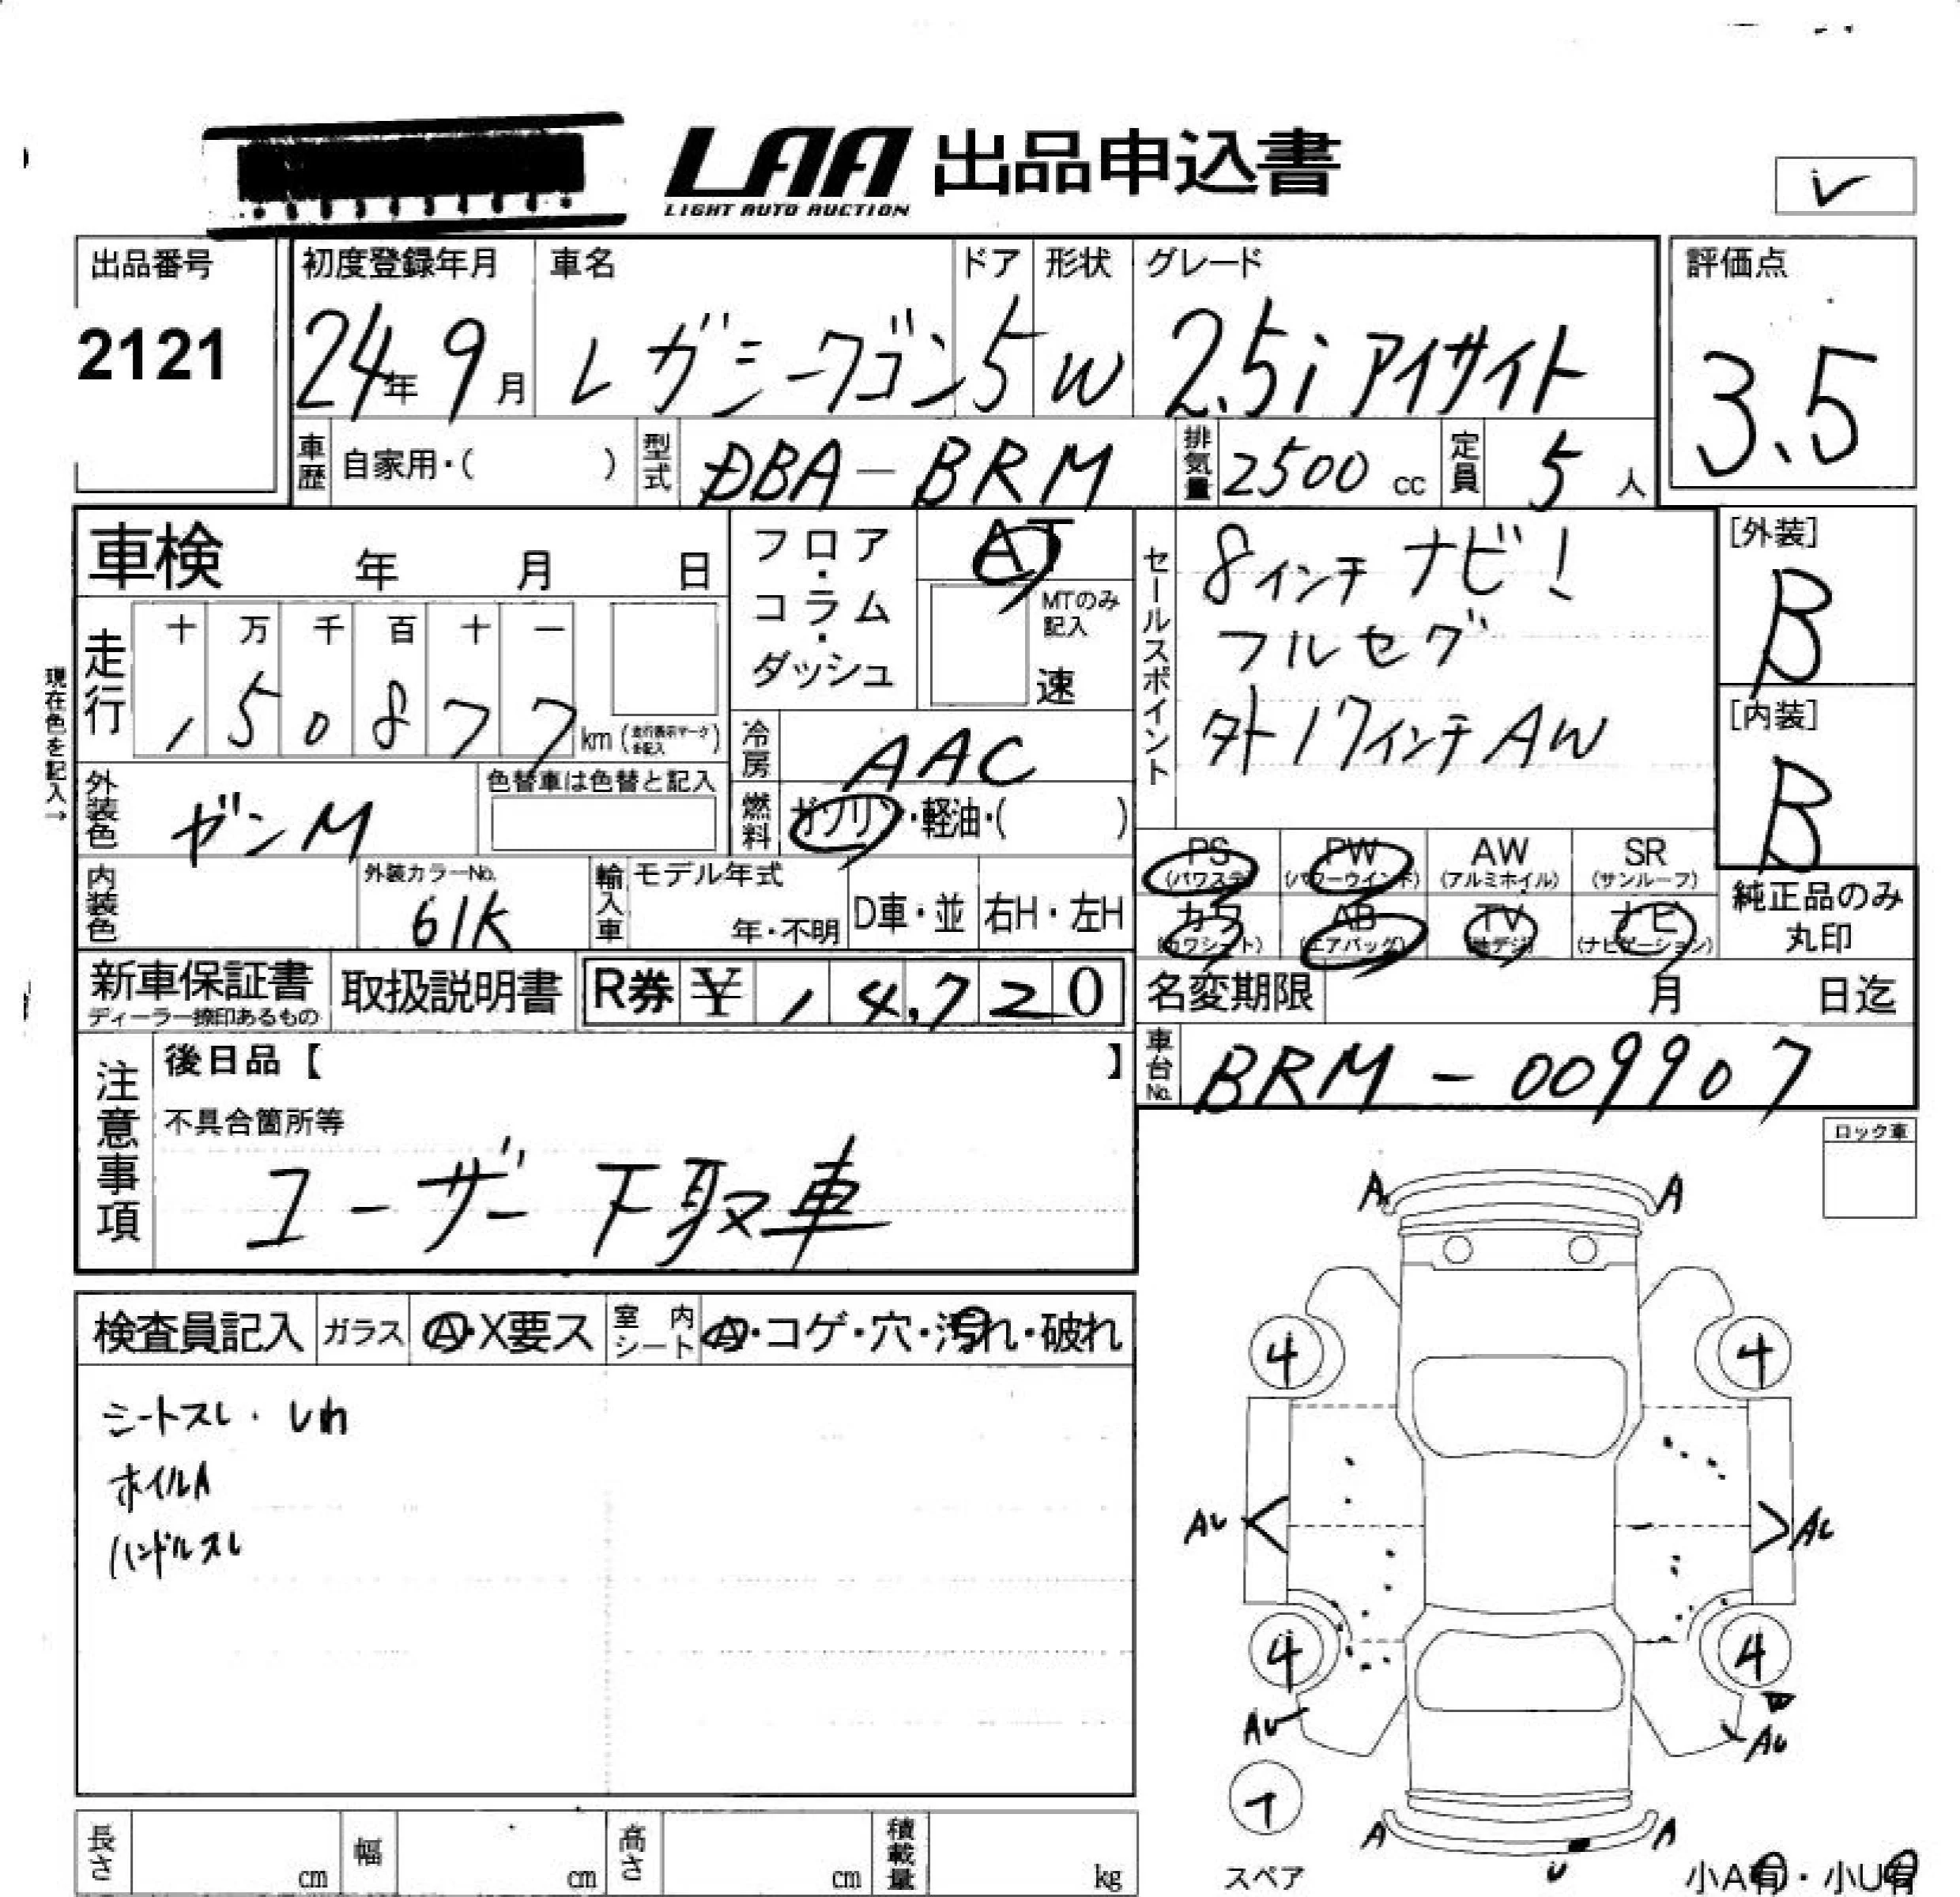 LAA 出品申込書
LIGHT AUTO AUCTION
レ
出品番号
2121
初度登録年月
24年9月
車名
レガシーワゴン
ドア
5
形状
W
グレード
2.5i アイサイト
評価点
3.5
車歴 自家用・( )
型式 DBA-BRM
排気量 2500 cc
定員 5 人
車検 年 月 日
フロア・コラム・ダッシュ
AT
MTのみ記入
速
セールスポイント
8インチ ナビ!
フルセグ
外17インチAW
[外装]
B
[内装]
B
現在色を記入→
走行
十 万 千 百 十 一
1 5 0 8 7 7 km (走行表示マークを記入)
冷房 AAC
燃料 ガソリン・軽油・( )
外装色 ガンM
色替車は色替と記入
内装色
外装カラーNo.
61K
輸入車
モデル年式
年・不明
D車・並
右H・左H
PS (パワステ)
PW (パワーウインド)
AW (アルミホイル)
SR (サンルーフ)
カワ (カワシート)
AB (エアバッグ)
TV (地デジ)
ナビ (ナビゲーション)
純正品のみ
丸印
新車保証書
ディーラー捺印あるもの
取扱説明書
R券 ¥ 14,720
名変期限 月 日迄
車台No. BRM-009907
注意事項
後日品【 】
不具合箇所等
ユーザー下取車
ロック車
検査員記入
ガラス A・X要ス
室内シート A・コゲ・穴・汚れ・破れ
シートスレ・シワ
ホイルA
ハンドルスレ
A A
4 4
AU AU
4 4
AU AU
スペア
A A
U
小A有・小U有
長さ cm
幅 cm
高さ cm
積載量 kg